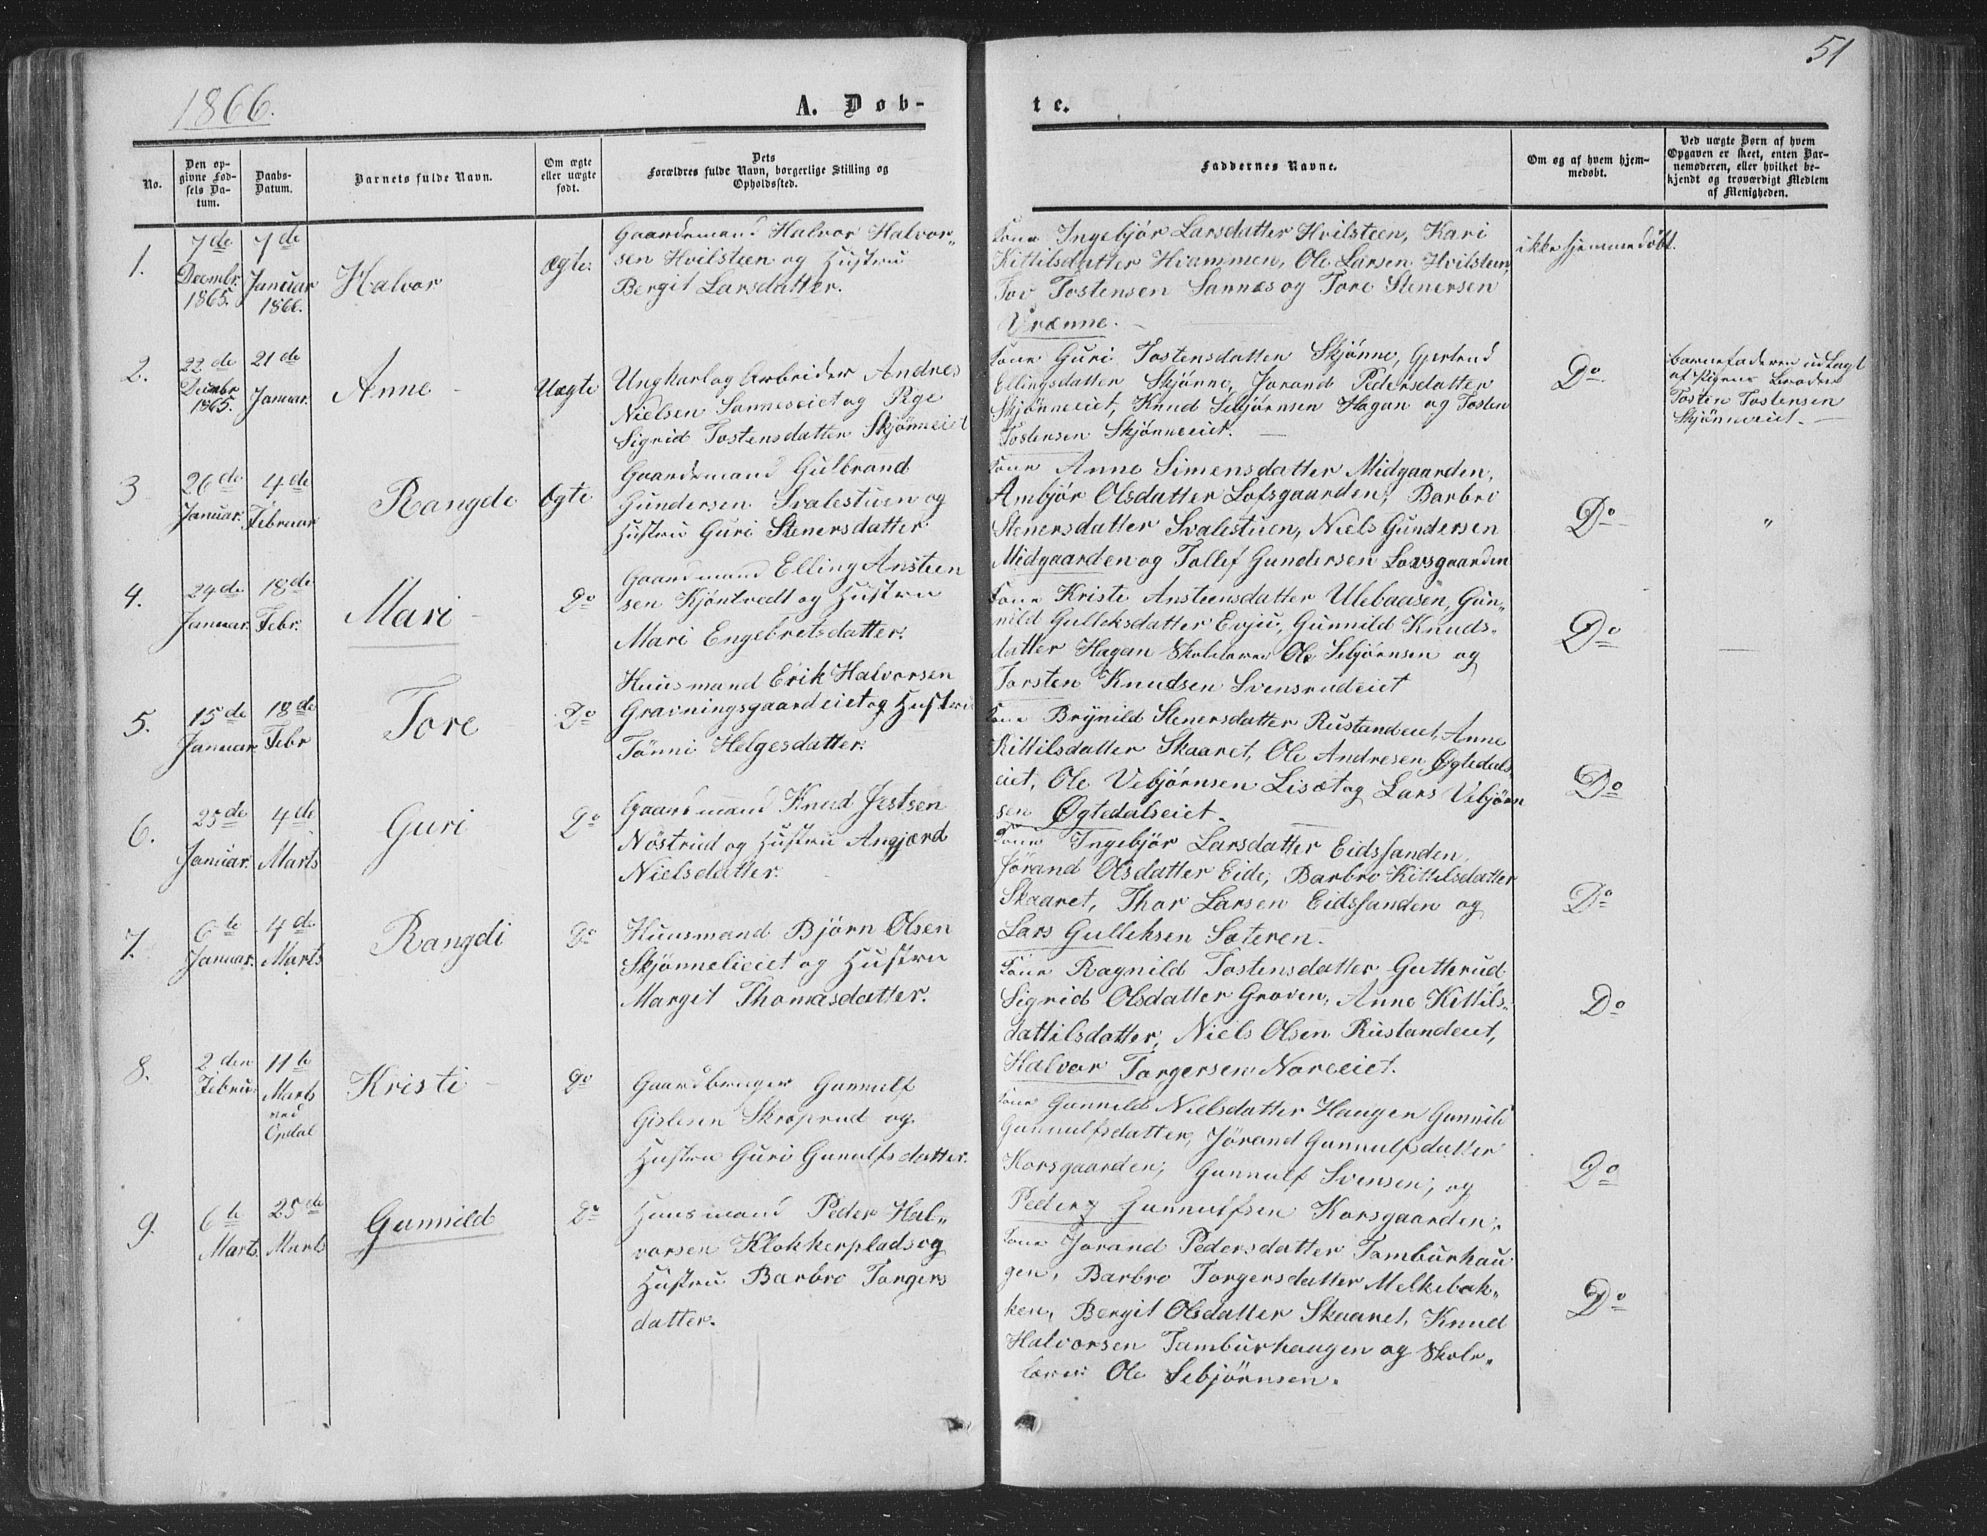 51
1866.
A. Døb-
te.
No.
Den op-
givne Fød-
sels Da-
tum.
Daabs-
Datum.
Barnets fulde Navn.
Om ægte
eller uægte
født.
Dets
Forældres fulde Navn, borgerlige Stilling og
Opholdssted.
Faddernes Navne.
Om og af hvem hjem-
medøbt.
Ved uægte Børn af hvem
Opgaven er skeet, enten Bar-
nemoderen, eller hvilket be-
kjendt og troværdigt Medlem
af Menigheden.
1.
7de
Decembr.
1865.
7de
Januar
1866.
Halvor
ægte.
Gaardemand Halvor Halvor-
sen Hvilsteen og Hustru
Bergit Larsdatter.
Ingebjør Larsdatter Hvilsteen, Kari
Kittilsdatter Hvammen, Ole Larsen Hvilsteen,
Tov Tostensen Sannes og Tore Stenersen
Vrænne.
ikke hjemmedøbt.
2.
22de
Decmbr
1865.
21de
Januar.
Anne
Uægte
Ungkarl og Arbeider Andres
Nielsen Sanneseiet og Pige
Sigrid Tostensdatter Skjønneeiet
Guri Tostensdatter Skjønne, Gjertrud
Ellingsdatter Skjønne, Jorand Pedersdatter
Skjønneeiet, Knud Sebjørnsen Hagan og Tosten
Tostensen Skjønneeiet.
Do
barnefaderen udlagt
af Pigens Broder
Tosten Tostensen
Skjønneeiet.
3
26de
Januar.
4de
Februar
Rangdi
Ægte
Gaardemand Gulbrand
Gundersen Svalestuen og
Hustru Guri Stenersdatter
Anne Simensdatter Midgaarden,
Ambjør Olsdatter Lofsgaarden, Barbro
Stenersdatter Svalestuen, Niels Gundersen
Midgaarden og Tollef Gundersen Lovsgaarden
Do
"
4.
24de
Januar.
18de
Febr.
Mari
Do
Gaardmand Elling Ansteen
sen Kjøntvedt og Hustru
Mari Engebretsdatter.
Kristi Ansteensdatter Ulebaasen, Gun-
nild Gulleksdatter Evju, Gunnild Knuds-
datter Hagan Skolelærer Ole Sebjørnsen og
Torsten Knudsen Svensrudeiet
Do
5.
15de
Januar.
18de
Febr
Tore
Do
Huusmand Erik Halvorsen
Gravningsgaardeiet og Hustru
Tønni Helgesdatter.
Brynild Stenersdatter Rustandeiet, Anne
Kittilsdatter Skaaret, Ole Andresen Øgtedals
eiet, Ole Vebjørnsen Liset og Lars Vebjørn
sen Øgtedalseiet.
Do
6.
25de
Januar.
4de
Marts
Guri
Do
Gaardmand Knud Jestsen
Nøstrud og Hustru Angjærd
Nielsdatter.
Ingebjør Larsdatter Eidssanden,
Jørand Olsdatter Eide, Barbro Kittilsdatter
Skaaret, Thor Larsen Eidssanden og
Lars Gulleksen Sateren.
Do
7.
6te
Januar.
4de
Marts
Rangdi
Do
Huusmand Bjørn Olsen
Skjønnelieiet og Hustru
Margit Thomasdatter.
Ragnild Tostensdatter Gutterud
Sigrid Olsdatter Groven, Anne Kittils-
dattilsdatter, Niels Olsen Rustandeiet,
Halvor Torgersen Noreeiet.
Do
8.
2den
Febru.
11te
Marts
ved
Opdal
Kristi
Do
Gaardbruger Gunnulf
Gislesen Skroprud og
Hustru Guri Gunulfsdatter.
Gunnild Nielsdatter Haugen Gunnild
Gunnulfsdatter, Jørand Gunnulfsdatter
Korsgaarden, Gunnulf Svensen, og
Peder Gunnulfsen Korsgaarden.
Do
9.
6te
Marts.
25de
Marts
Gunnild
Do
Huusmand Peder Hal-
vorsen Klokkerplads og
Hustru Barbro Torgers
datter.
Jorand Pedersdatter Tamburhau
gen, Barbro Torgersdatter Melkebak-
ken, Bergit Olsdatter Skaaret, Knud
Halvorsen Tamburhaugen og Skole-
lærer Ole Sebjørnsen.
Do